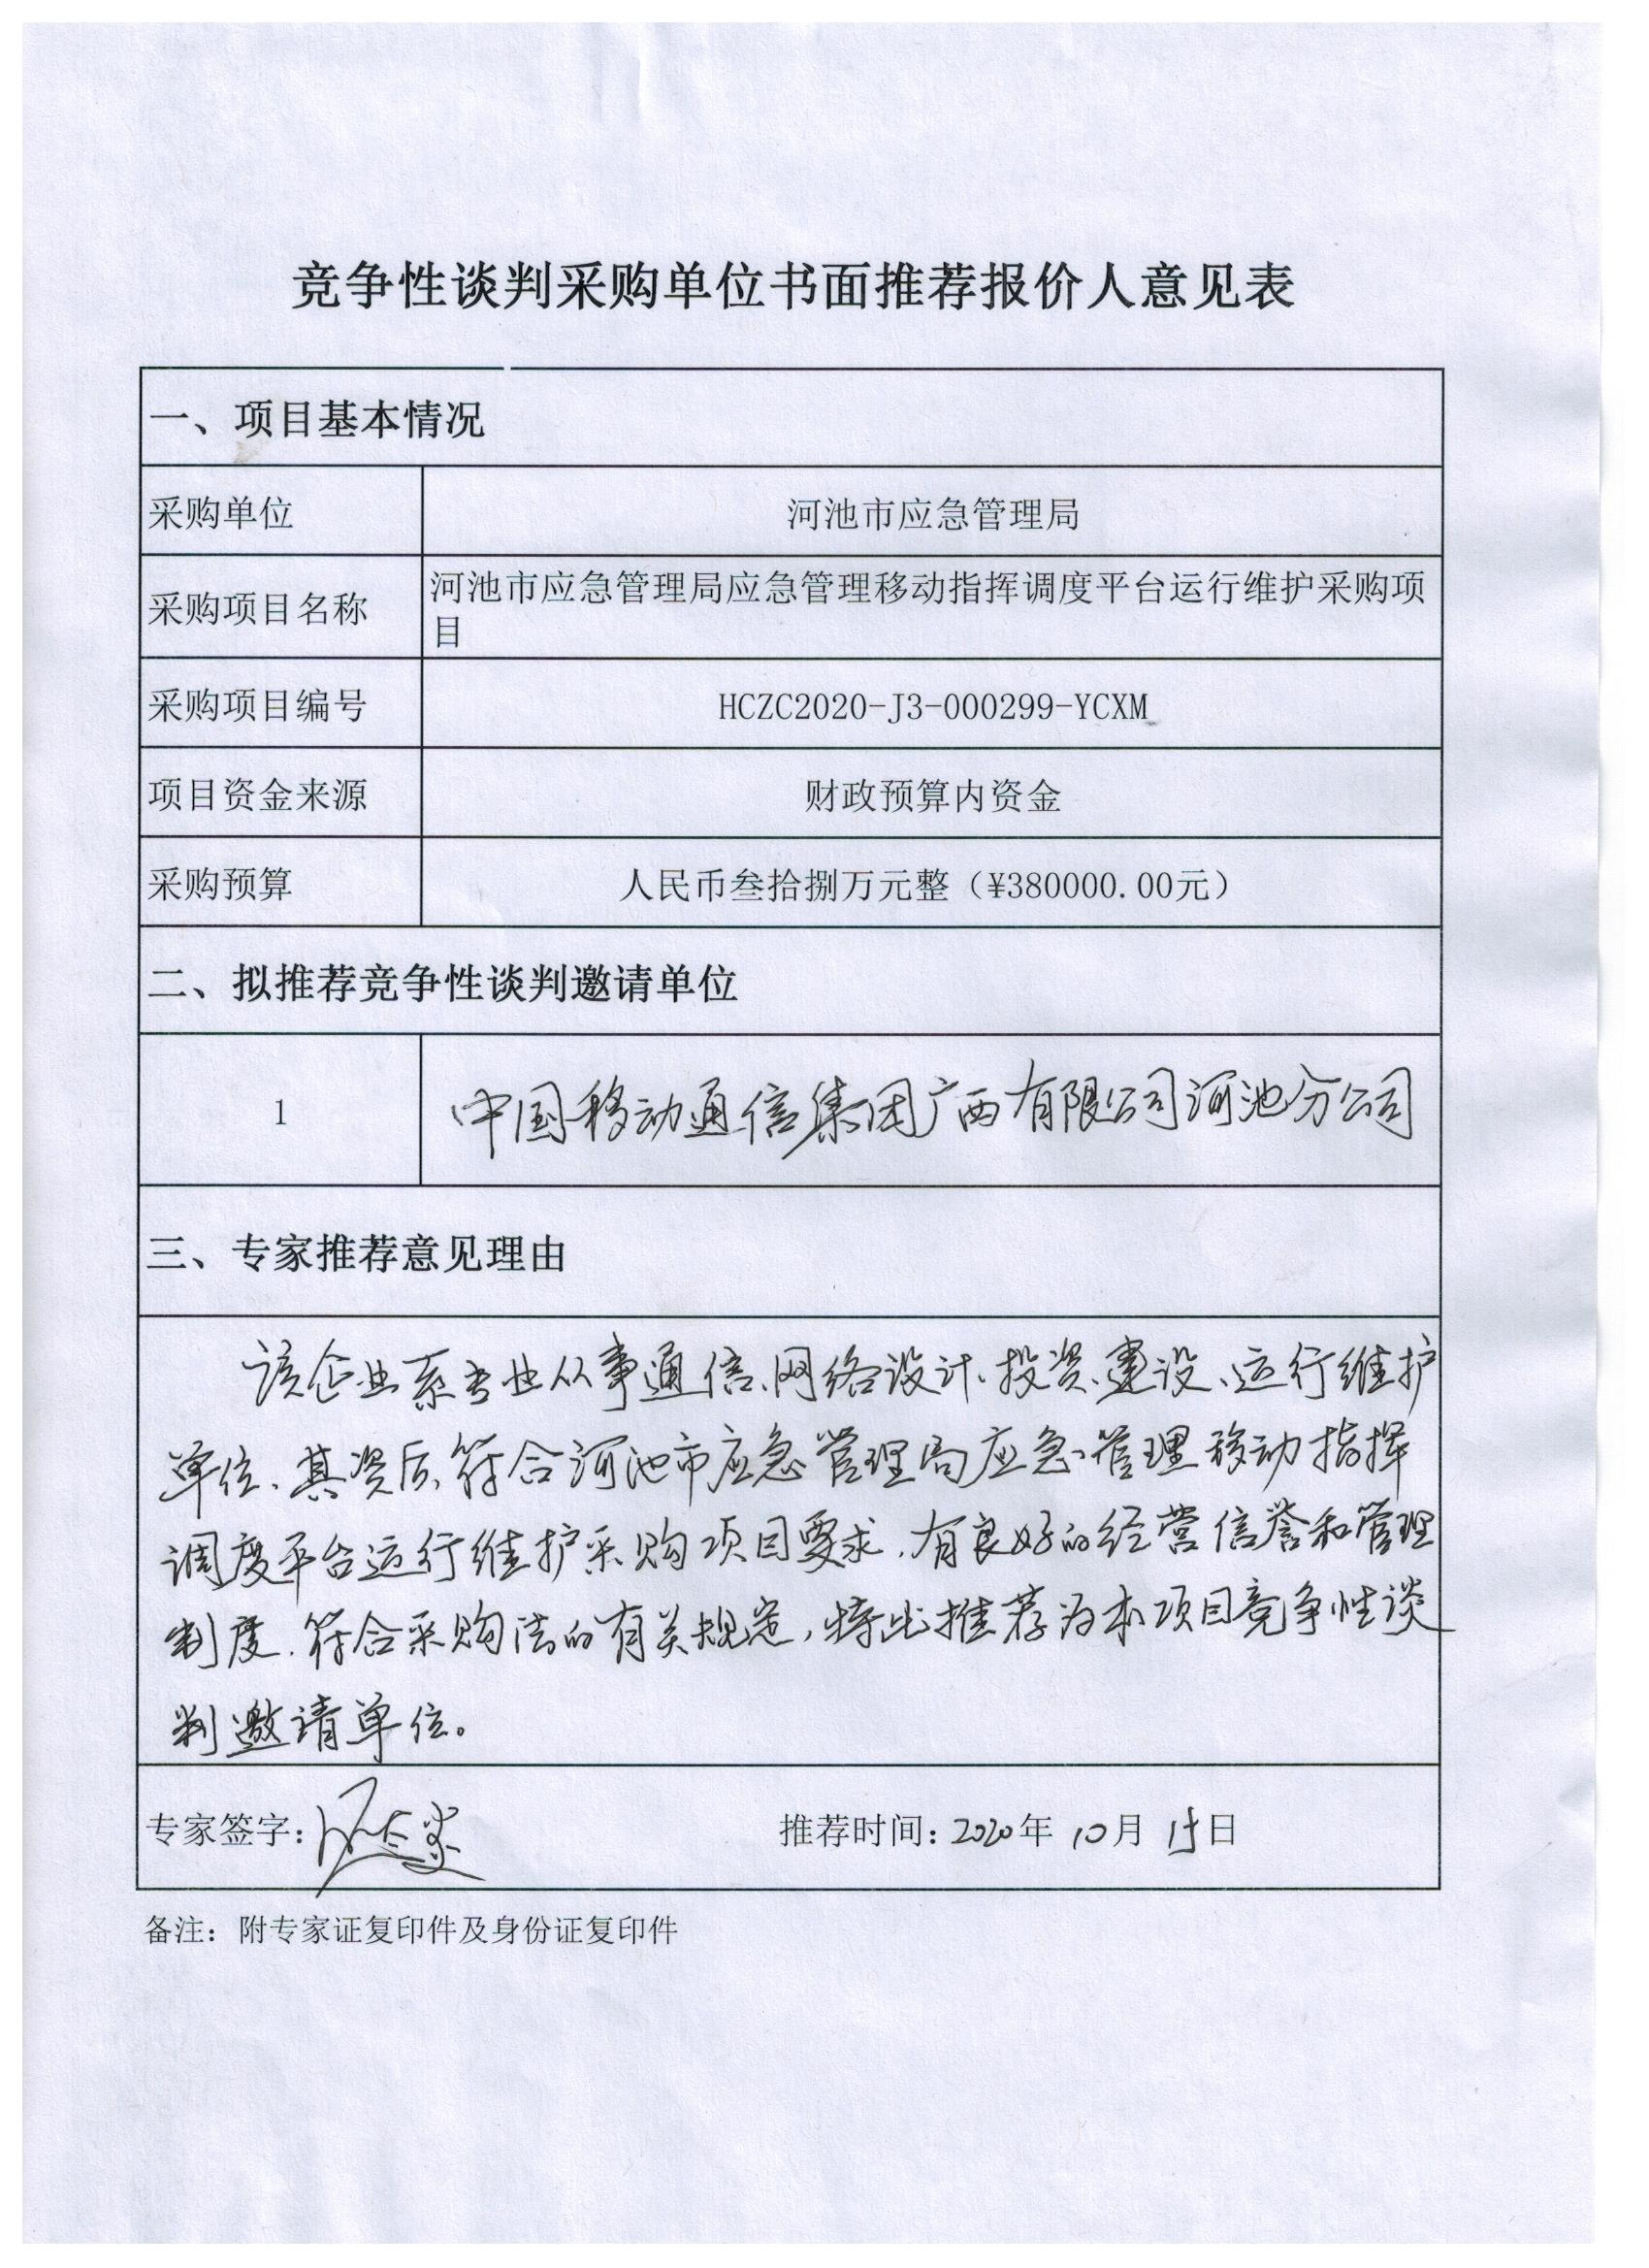 竞争性谈判采购单位书面推荐报价人意见表
一、项目基本情况
采购单位
河池市应急管理局
采购项目名称
河池市应急管理局应急管理移动指挥调度平台运行维护采购项
目
采购项目编号
HCZC2020-J3-000299-YCXM
项目资金来源
财政预算内资金
采购预算
人民币叁拾捌万元整（¥380000.00元）
二、拟推荐竞争性谈判邀请单位
1
中国移动通信集团广西有限公司河池分公司
三、专家推荐意见理由
该企业系专业从事通信、网络设计、投资、建设、运行维护
单位、其资质符合河池市应急管理局应急管理移动指挥
调度平台运行维护采购项目要求，有良好的经营信誉和管理
制度，符合采购法的有关规定，特此推荐为本项目竞争性谈
判邀请单位。
专家签字：
推荐时间：2020年 10月 15日
备注：附专家证复印件及身份证复印件